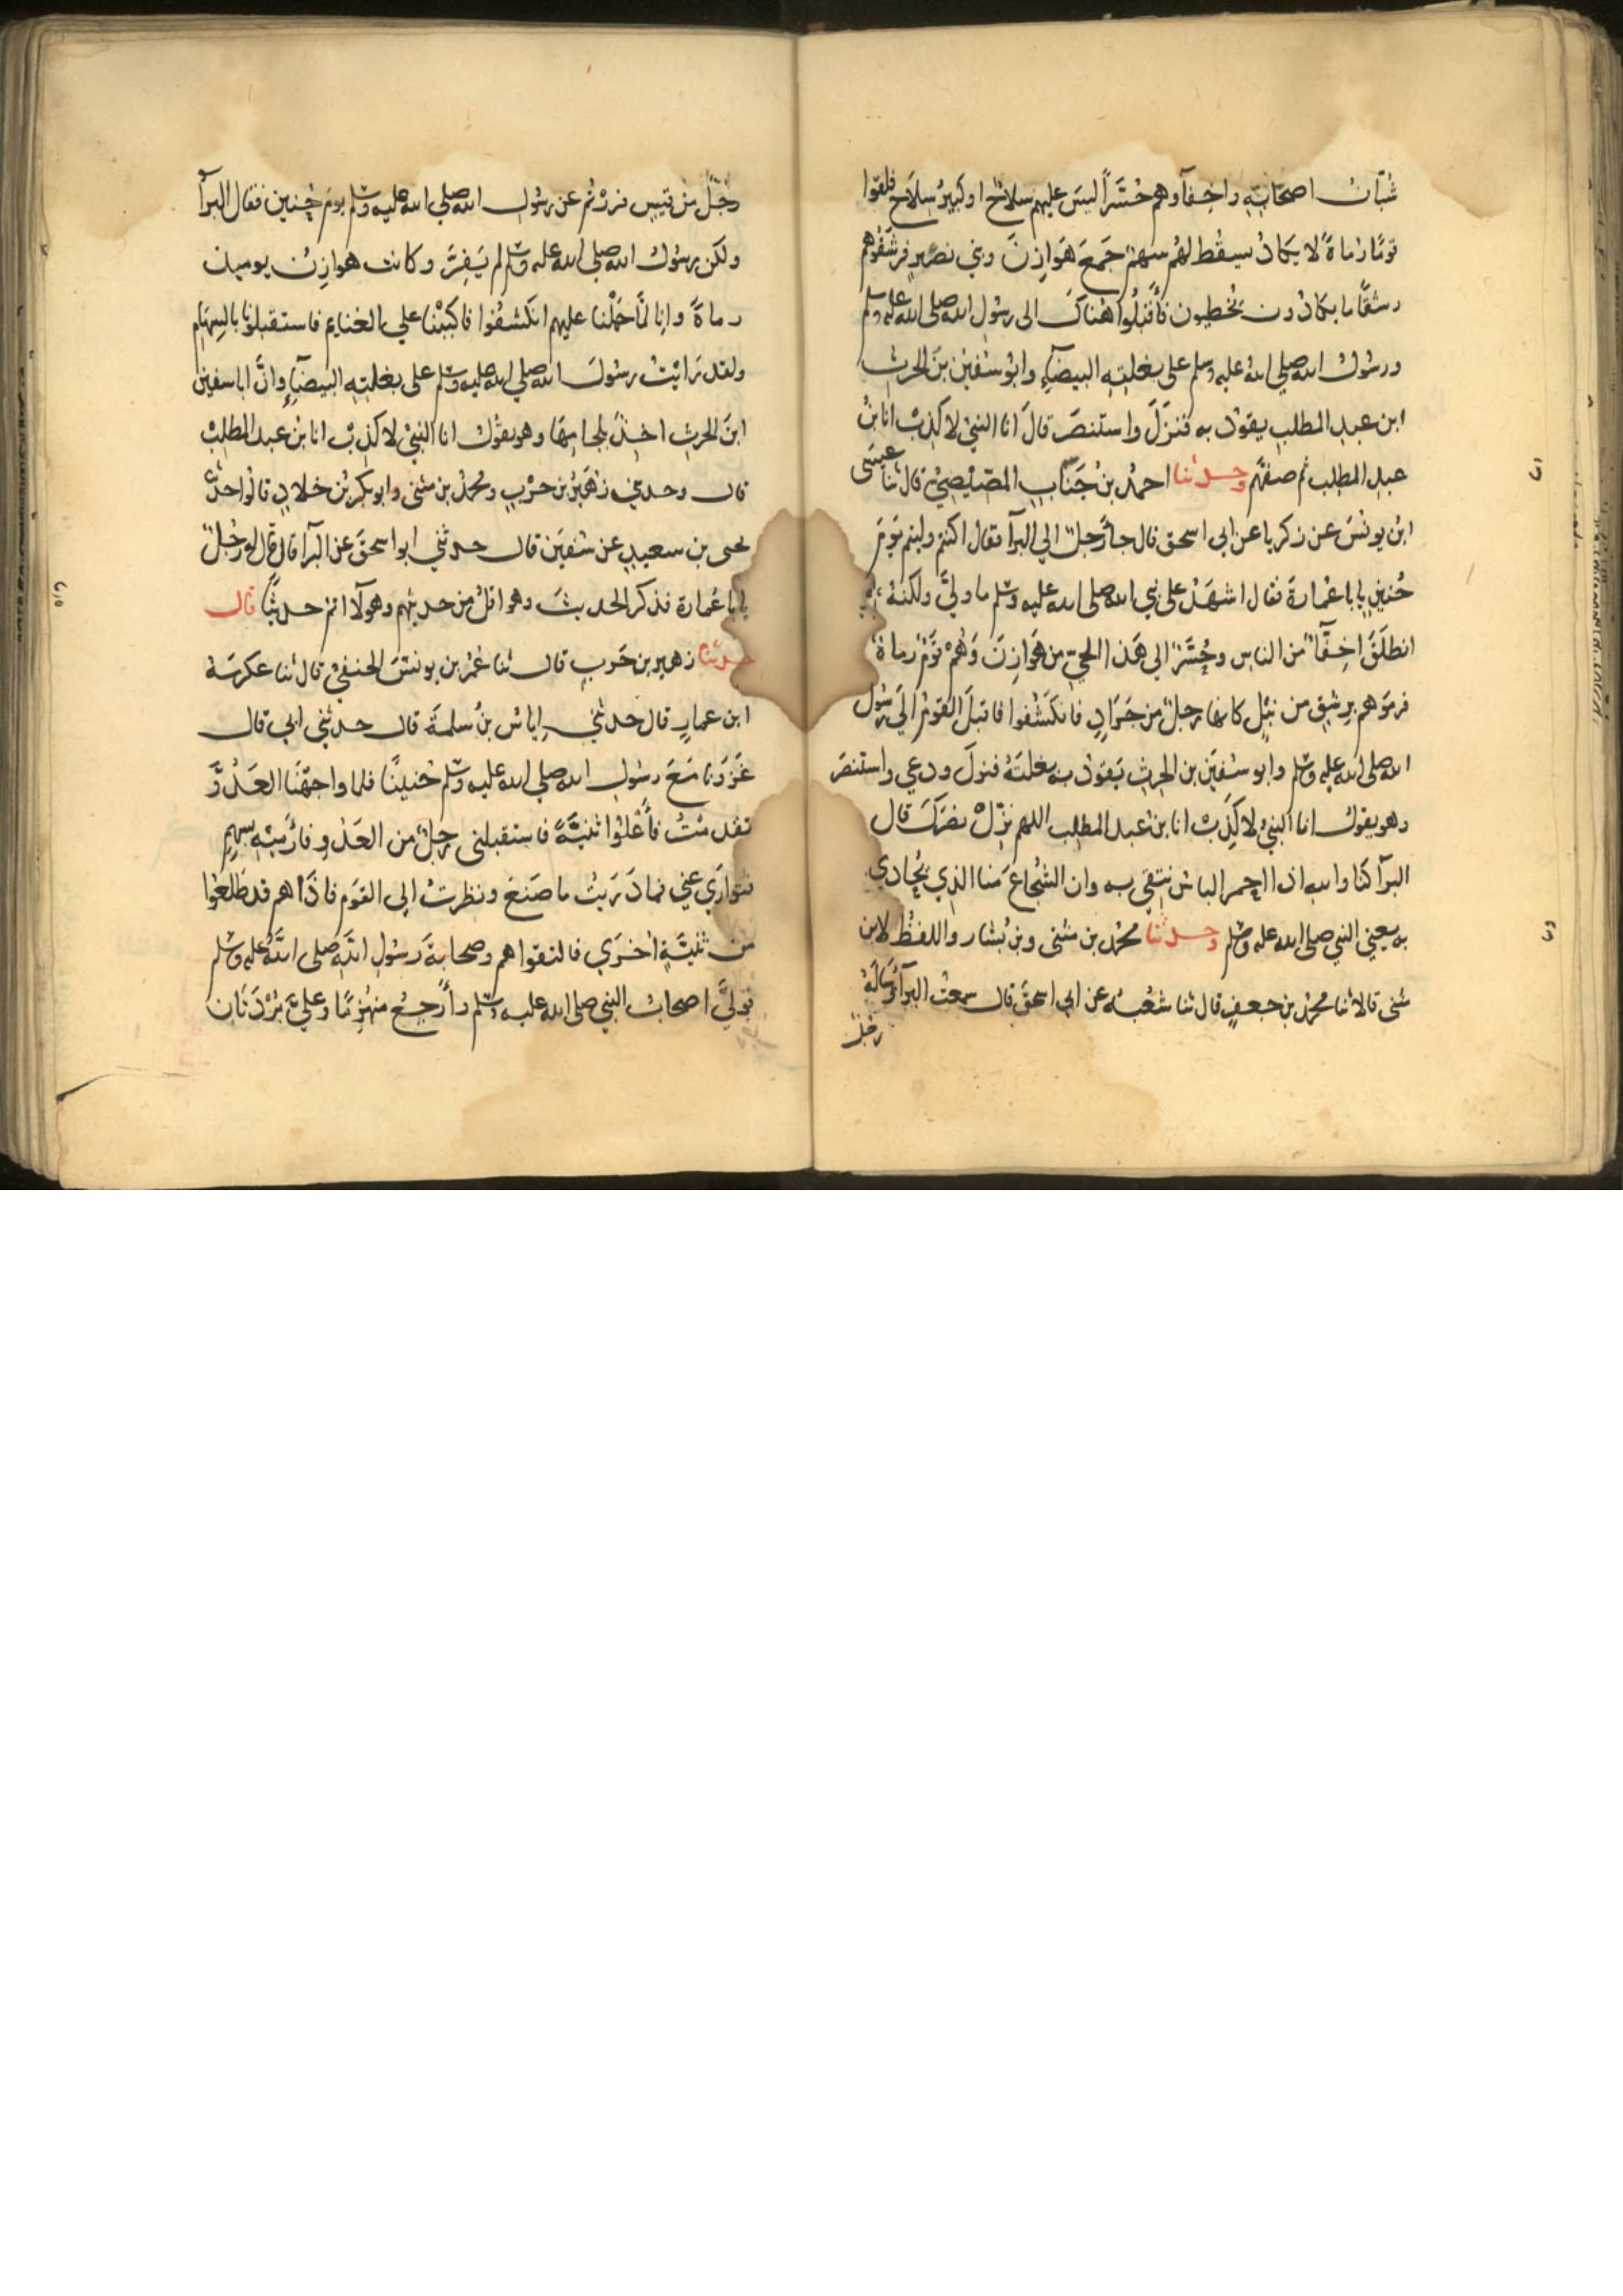 شُبّانُ اصحَابِهِ واخِفّآوهم حُسَّرًا ليسَ عليهم سلاحٌ او كبيرُ سِلاحٍ فلقوا
قومًا رُماةً لا يكادُ يسقُط لهُم سهمٌ جَمعَ هَوازِنَ وبني نصرٍ فرشقُوهم
رشقًا ما يكادُون يُخطِيون فأقبَلُوا هُناكَ الى رسُولِ الله صلى الله عليه وسلم
ورسُولُ الله صلى اللهُ عليه وسلم على بغلتِهِ البيضآءِ وابُو سُفين بنُ الحرثِ
ابن عبدِ المطلبِ يقودُ به فنزَلَ واستنصَرَ قالَ انا النبيُ لا كذِبْ انا ابنُ
عبدِ المطلب ثم صفهُم وحدثنا احمدُ بنُ جَنَابٍ المصّيصِيُّ قال ثنا عيسَى
ابنُ يونُسَ عن زكريا عن ابي اسحق قال جآ رَجلٌ الى البرآ فقال اكنتم وليتم يَومَ
حُنينٍ يابا عُمارةَ فقال اشهَدُ على نبي الله صلى الله عليه وسلم ما وليَّ ولكنهُ
انطلَقَ اخِفّآءُ من الناسِ وحُسَّرٌ الى هَذا الحيِّ من هَوازِنَ وَهُمْ قَومٌ رُماةٌ
فرمَوهم بِرِشقٍ من نَبْلٍ كانها رِجلٌ من جَرَادٍ فانكَشَفُوا فاقبلَ القومُ الى رسُول
الله صلى الله عليه وسلم وابو سُفيَن بن الحرِثِ يَقودُ به بغلتَهُ فنزلَ ودعي واستنصَر
وهو يقول انا النبيُ لا كَذِبْ انا بن عبد المطلب اللهم نزّلْ نصْرَكَ قال
البرآ كنّا والله اذا احمر الباسُ نتقي به وان الشُجاعَ مَنا الذي يُحاذي
به يعني النبي صلى الله عليه وسلم وحدثنا محمدُ بن مثنى وبن بُشار واللفظُ لابن
مثنى قالا ثنا محمدُ بن جعفرٍ قال ثنا شعْبةُ عن ابي اسحقَ قال سمعْت البرآ وَسَالَهُ
رجُلٌ
رجُلٌ من قيسٍ فررْتُم عن رسُولِ الله صلى الله عليه وسلم يومَ حُنينٍ فقال البرآ
ولكن رسُولُ الله صلى الله عليه وسلم لم يَفِرَّ وكانت هوازِنُ يوميذ
رماةً وانا لمَّا حَملْنا عليهم انكشفُوا فاكببْنا على الغنايمِ فاستقبلونا بالسِهامِ
ولقد رَايْتُ رسُولَ الله صلى الله عليه وسلم على بغلتِهِ البيضآءِ وانَّ ابا سفين
ابنَ الحرثِ اخِذٌ بلجامِهَا وهو يقُولُ انا النبيُ لا كذِبْ انا ابن عبد المطلبْ
قال وحدثني زُهَيرُ بن حرْبٍ ومحمدُ بن مثنى وابو بكرِ بنُ خلادٍ قالُوا حدثنا
يحيى بن سعيدٍ عن سُفيَن قال حدثني ابو اسحقَ عن البرآ قال قال له رجُلٌ
يابا عُمارة فذكر الحديثَ وهو اقلُ من حديثِهم وهولآ اتم حديثًا قال
حدثنا زهير بن حَربٍ قال ثنا عُمَرُ بن يونسَ الحنفيُ قال ثنا عكرمَةُ
ابن عمارٍ قال حدثني اِياسُ بنُ سلمةَ قال حدثني ابي قال
غَزَوْنا مَعَ رسُولِ الله صلى الله عليه وسلم حُنينًا فلما واجهْنا العَدُوَّ
تقدمْتُ فأعْلُوا ثنيَّةً فاستقبلني رجلٌ من العَدُوِ فارْميهِ بسهمٍ
فتوارَي عني فما دَرَيْتُ ما صَنعَ ونظرتُ الى القوَم فاذا هم قد طلعُوا
من ثنيَّةٍ اُخرَي فالتقوا هم وصحابةُ رسُولِ اللهِ صلى اللهُ عليه وسلم
فوليَّ اصحابُ النبي صلى الله عليه وسلم وأرْجِعُ منهُزِمًا وعليَّ بُرْدَتَانِ